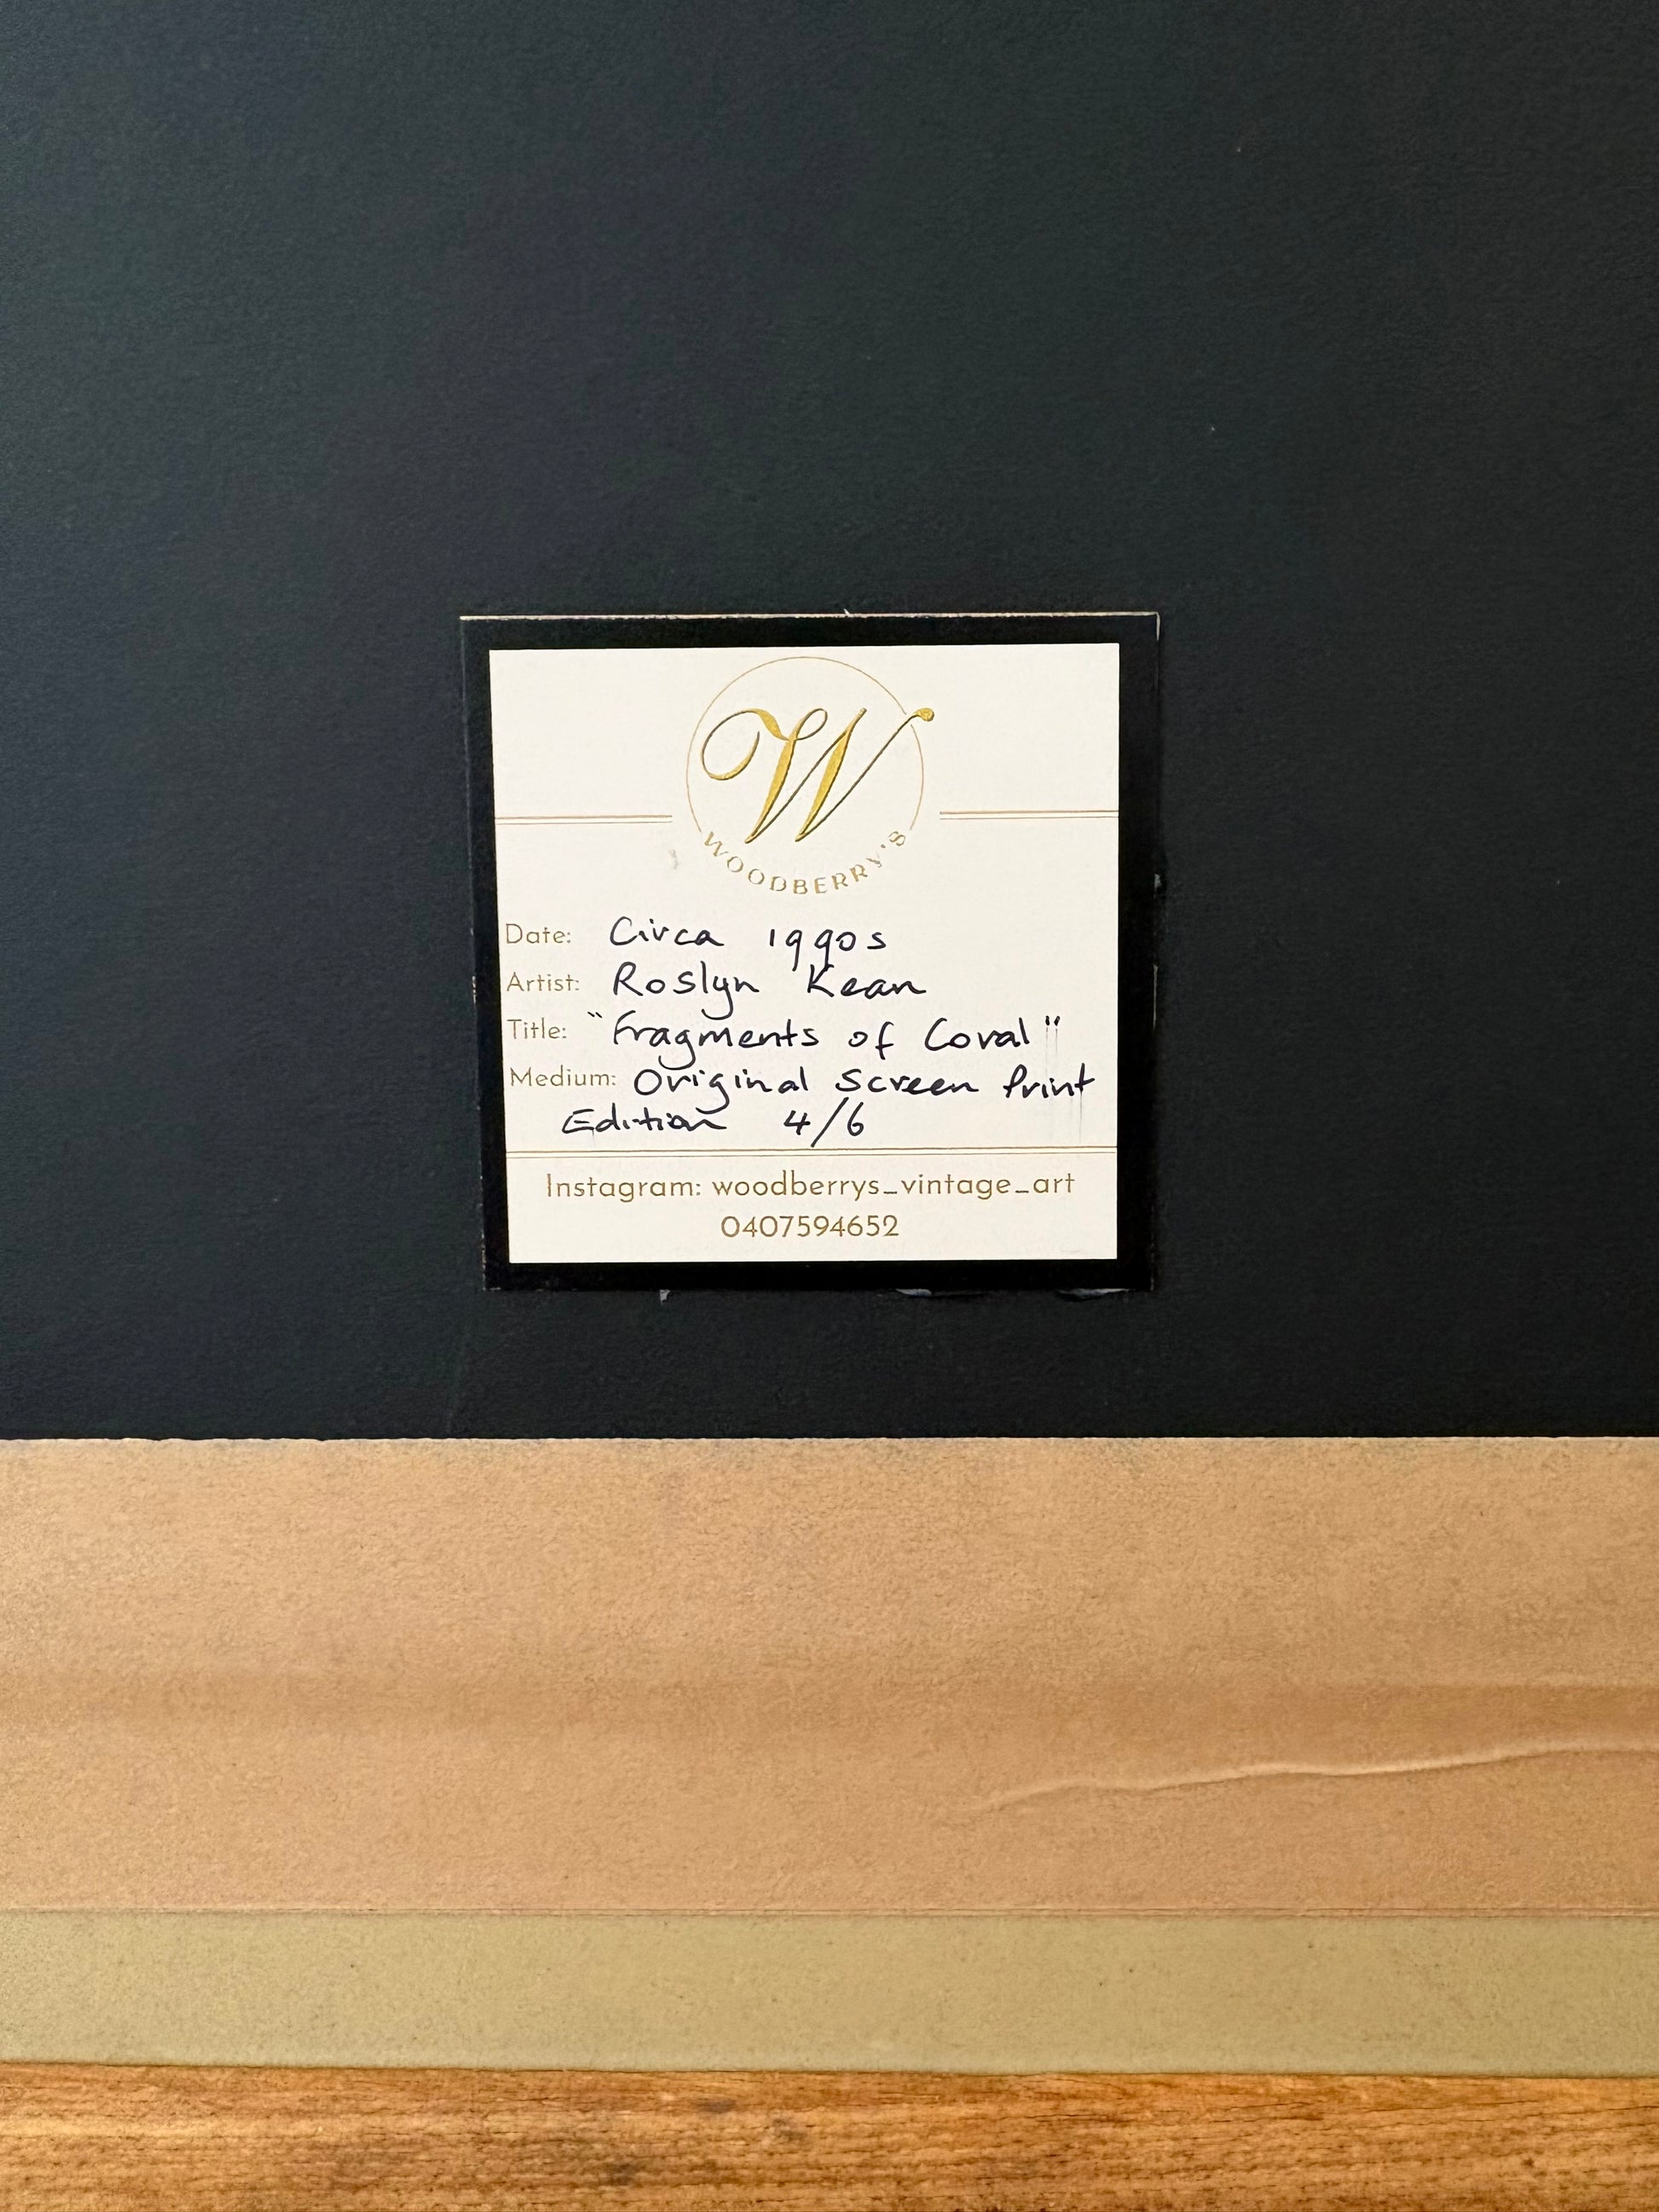 W
WOODBERRY'S
Date: Circa 1990s
Artist: Roslyn Kean
Title: "Fragments of Coral"
Medium: Original Screen Print
Edition 4/6
Instagram: woodberrys_vintage_art
0407594652